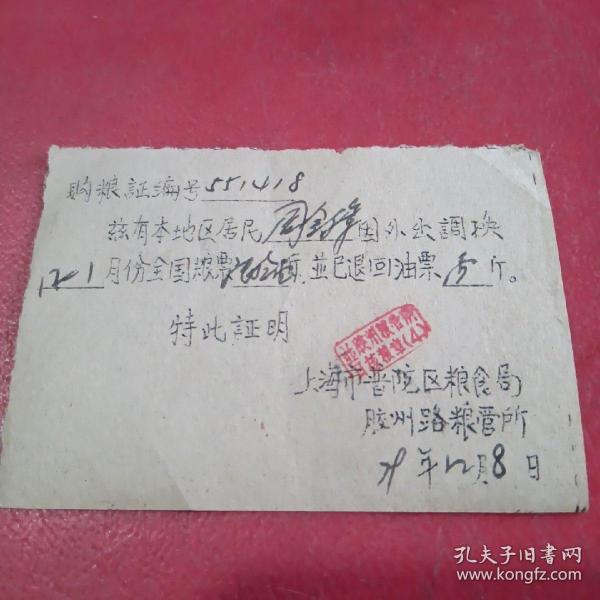 购粮証编号551418
兹有本地区居民 因外出調换
12-1月份全国粮票 並已退回油票 斤。
特此証明
上海市普陀区粮食局
胶州路粮管所
年12月8日
孔夫子旧书网
www.kongfz.com